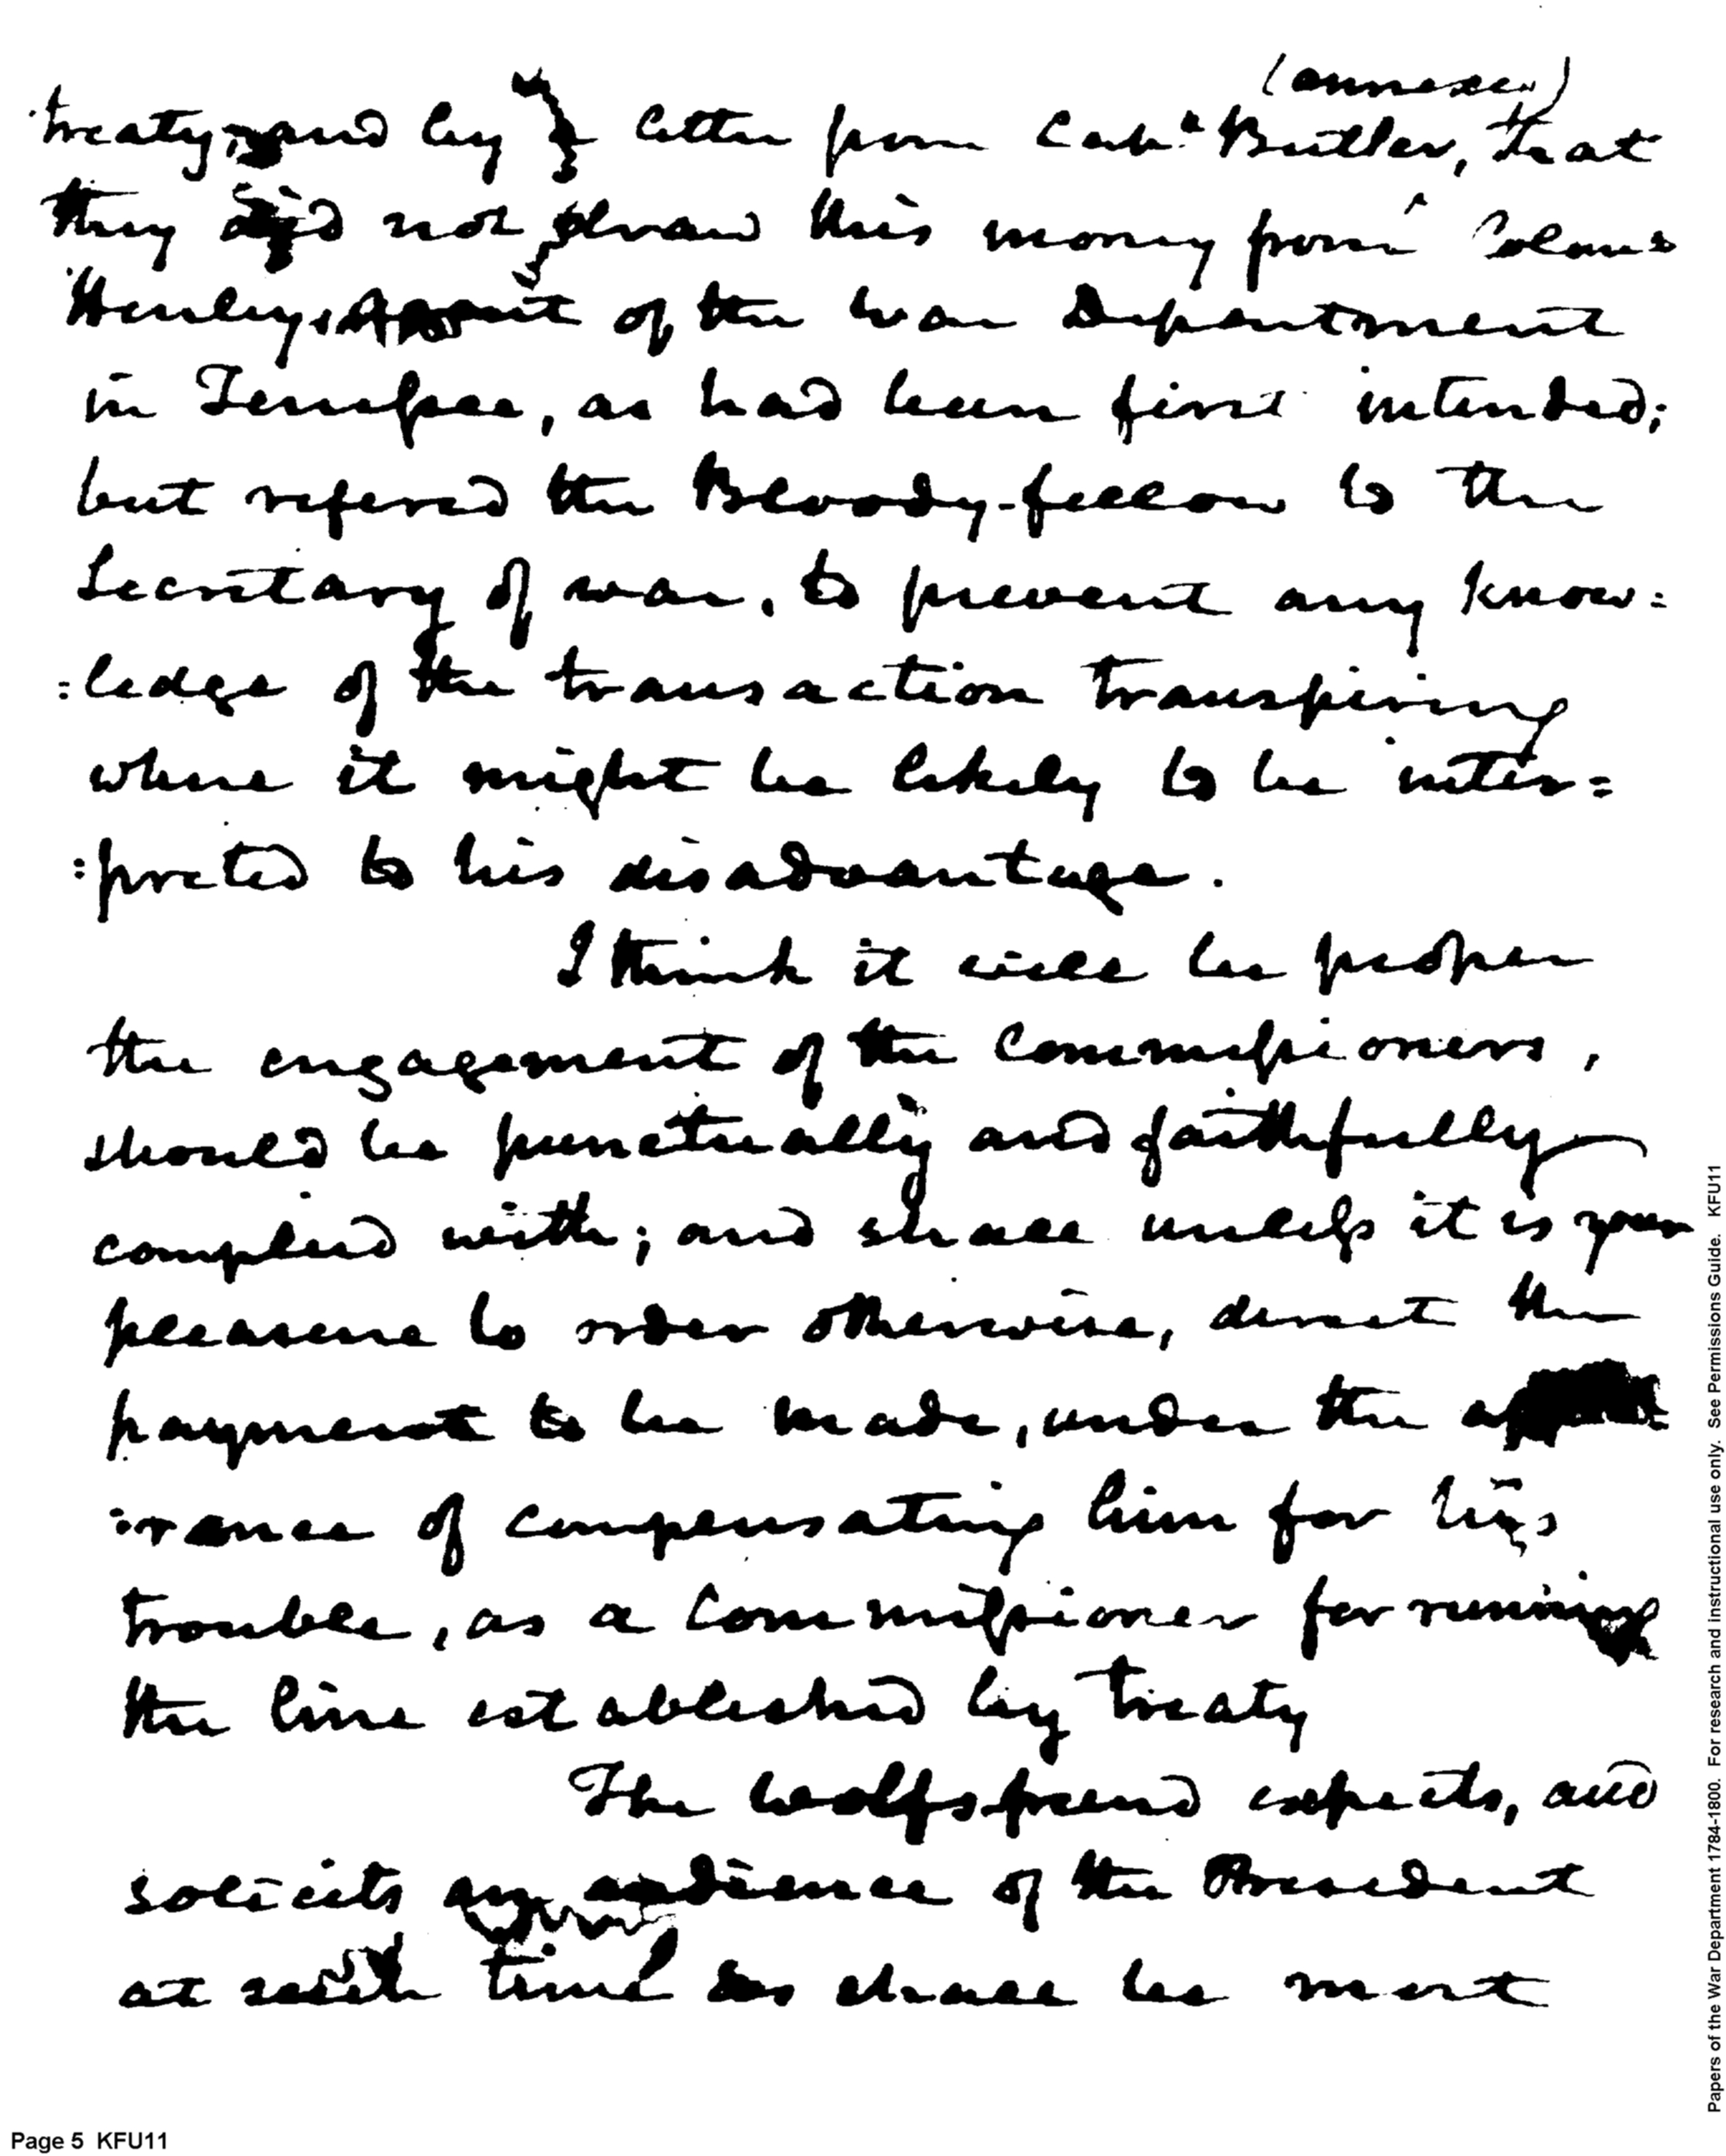 (annexed)
treaty and by letter from Col: Butler, that
they did not draw this money from
Henley, Agent of the War Department
in Tennessee, as had been first intended;
but refered the Bloody-fellow to the
Secretary of war, to prevent any know=
=ledge of the transaction transpiring
where it might be likely to be inter=
=preted to his disadvantage.
I think it will be proper
the engagement of the Commissioners,
should be punctually and faithfully
complied with; and shall unless it is your
pleasure to order otherwise, direct the
payment to be made, under the
=rance of compensating him for his
trouble, as a Commissioner for running
the line established by treaty
The Wolfsfriend expects, and
solicits an audience of the President
at such time as shall be most
Page 5 KFU11
Papers of the War Department 1784-1800. For research and instructional use only. See Permissions Guide. KFU11